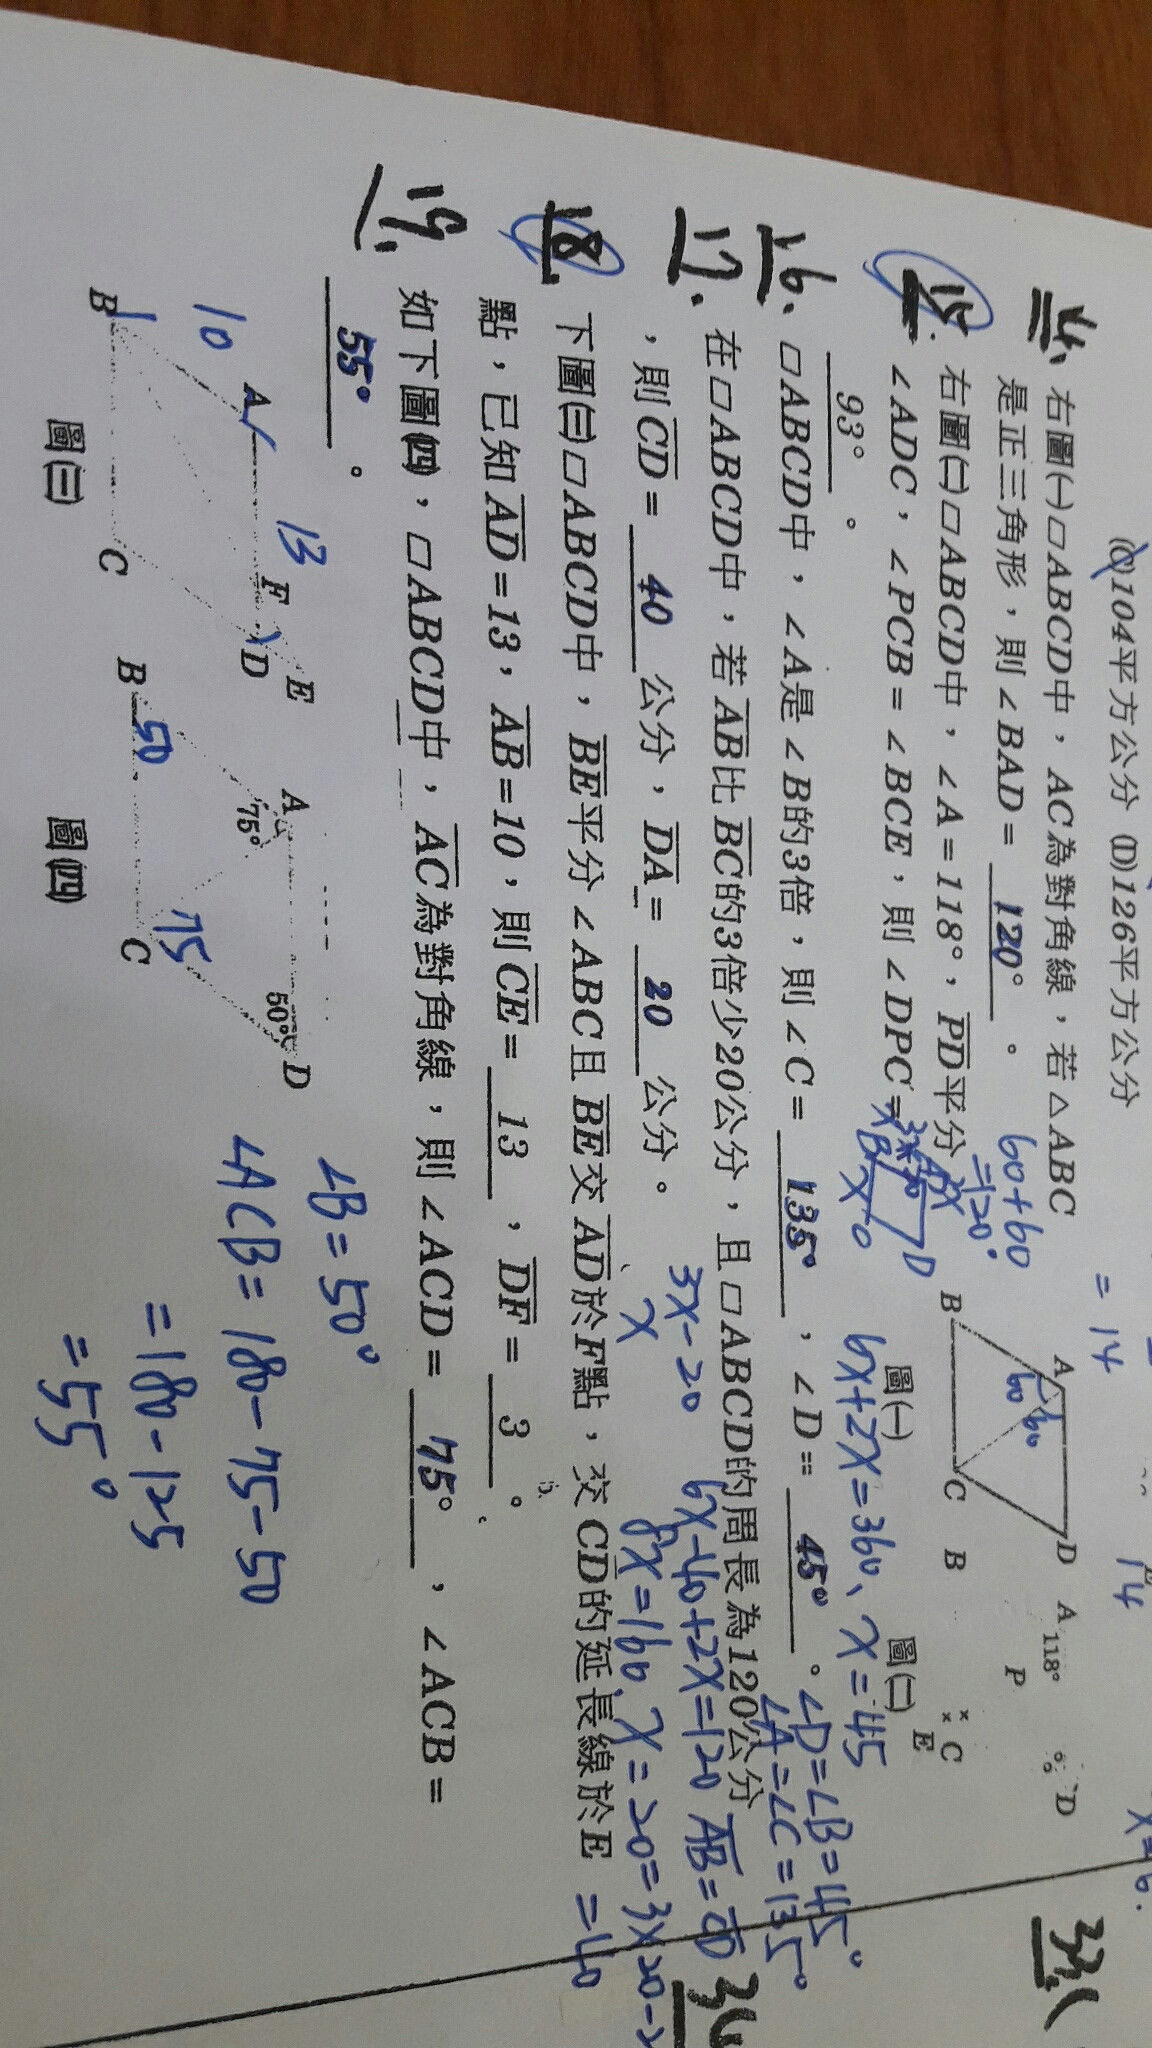 (C)104平方公分 (D)126平方公分
= 14
14
14、右圖㈠▱ABCD中，AC為對角線，若△ABC
是正三角形，則∠BAD= 120° 。
60+60
=120°
15.右圖㈡▱ABCD中，∠A=118°，PD平分
∠ADC，∠PCB=∠BCE，則∠DPC=
93° 。
A D
60 60
B C
圖㈠
A 118° D
P
B C
E
圖㈡
16、▱ABCD中，∠A是∠B的3倍，則∠C= 135° ，∠D= 45° 。
6x+2x=360、x=45
∠D=∠B=45°
∠A=∠C=135°
17、在▱ABCD中，若AB比BC的3倍少20公分，且▱ABCD的周長為120公分
，則CD= 40 公分，DA= 20 公分。
3x-20
x
6x-40+2x=120 AB=CD
8x=160、x=20=3×20-2
=40
18.下圖㈢▱ABCD中，BE平分∠ABC且BE交AD於F點，交CD的延長線於E
點，已知AD=13，AB=10，則CE= 13 ，DF= 3 。
19、如下圖㈣，▱ABCD中，AC為對角線，則∠ACD= 75° ，∠ACB=
55° 。
10 A 13 F D E
B C
圖㈢
A 75° 50° D
B 50 75 C
圖㈣
∠B=50°
∠ACB=180-75-50
=180-125
=55°